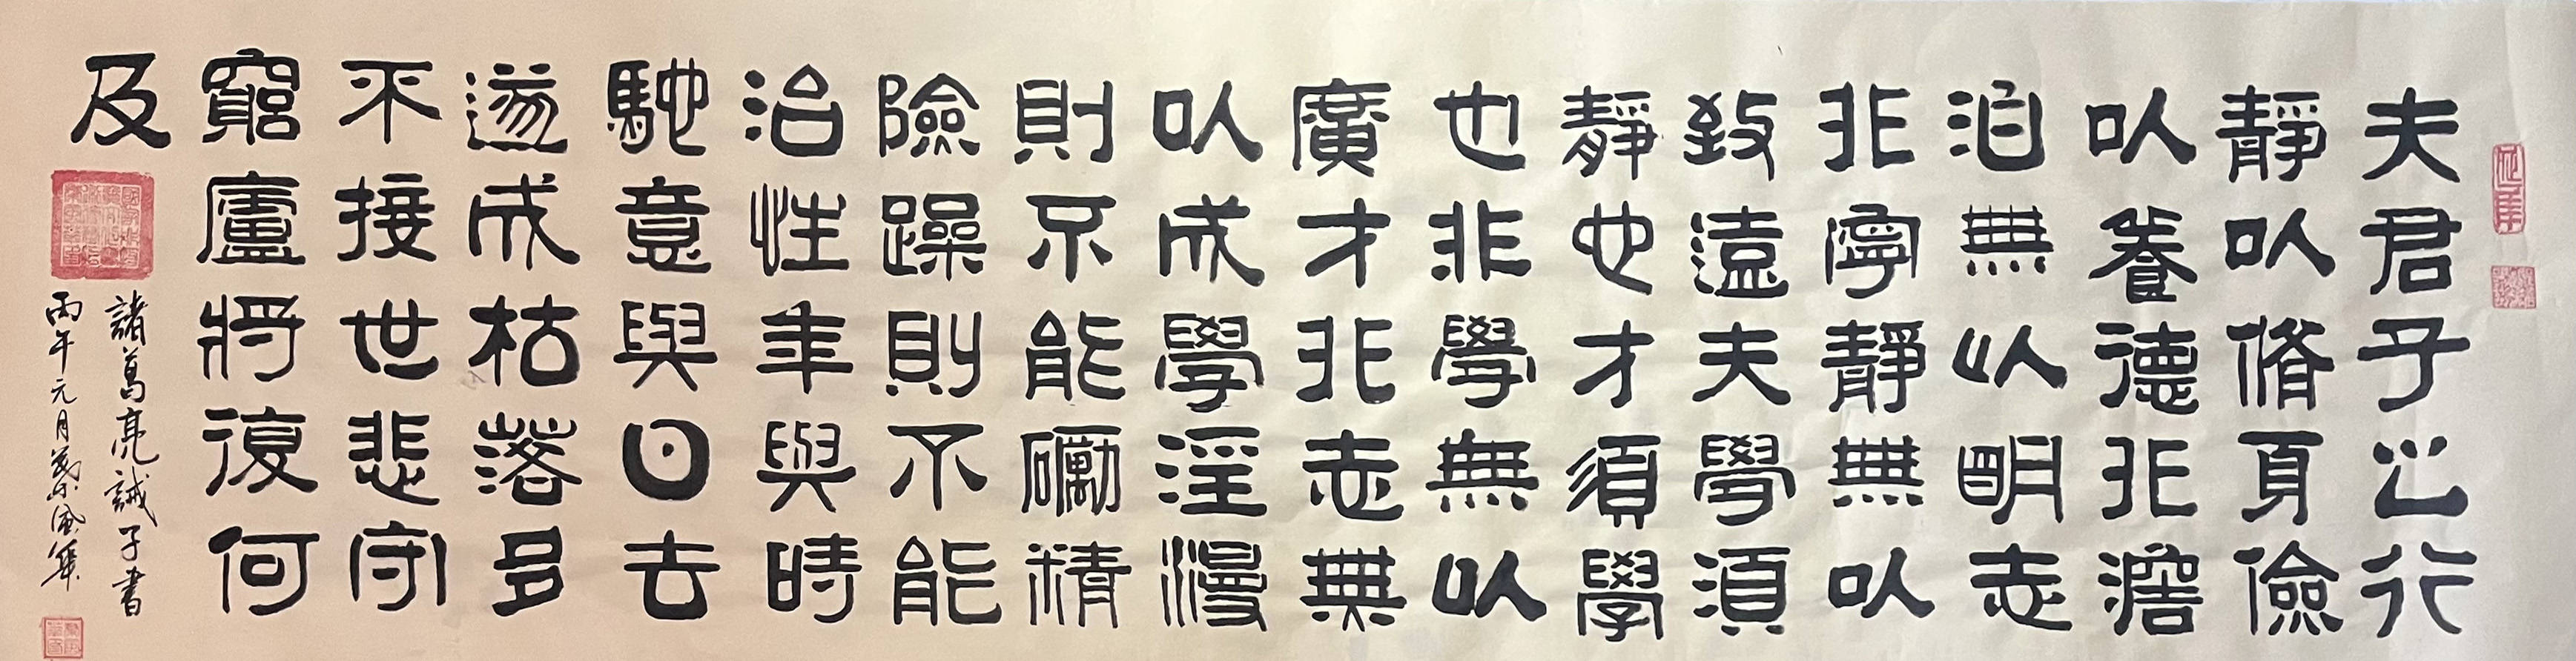 夫君子之行
靜以脩身儉
以養德非澹
泊無以明志
非寧靜無以
致遠夫學須
靜也才須學
也非學無以
廣才非志無
以成學淫漫
則不能礪精
險躁則不能
治性年與時
馳意與日去
遂成枯落多
不接世悲守
窮廬將復何
及
諸葛亮誡子書
丙午元月